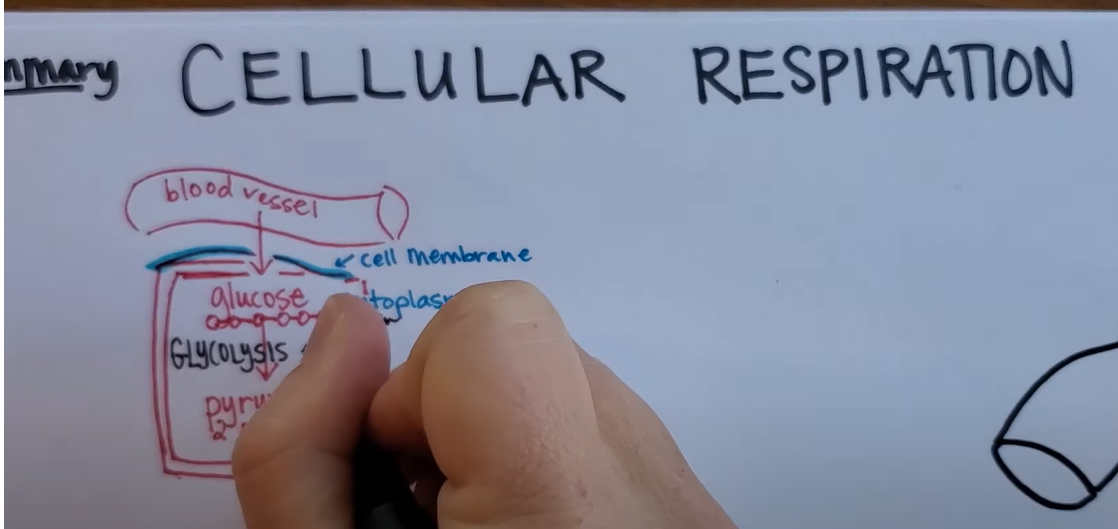 CELLULAR RESPIRATION
blood vessel
cell membrane
glucose
GLYCOLYSIS
2